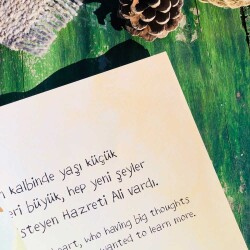 kalbinde yaşı küçük
eri büyük, hep yeni şeyler
steyen Hazreti Ali vardı.
eart, who having big thoughts
wanted to learn more.